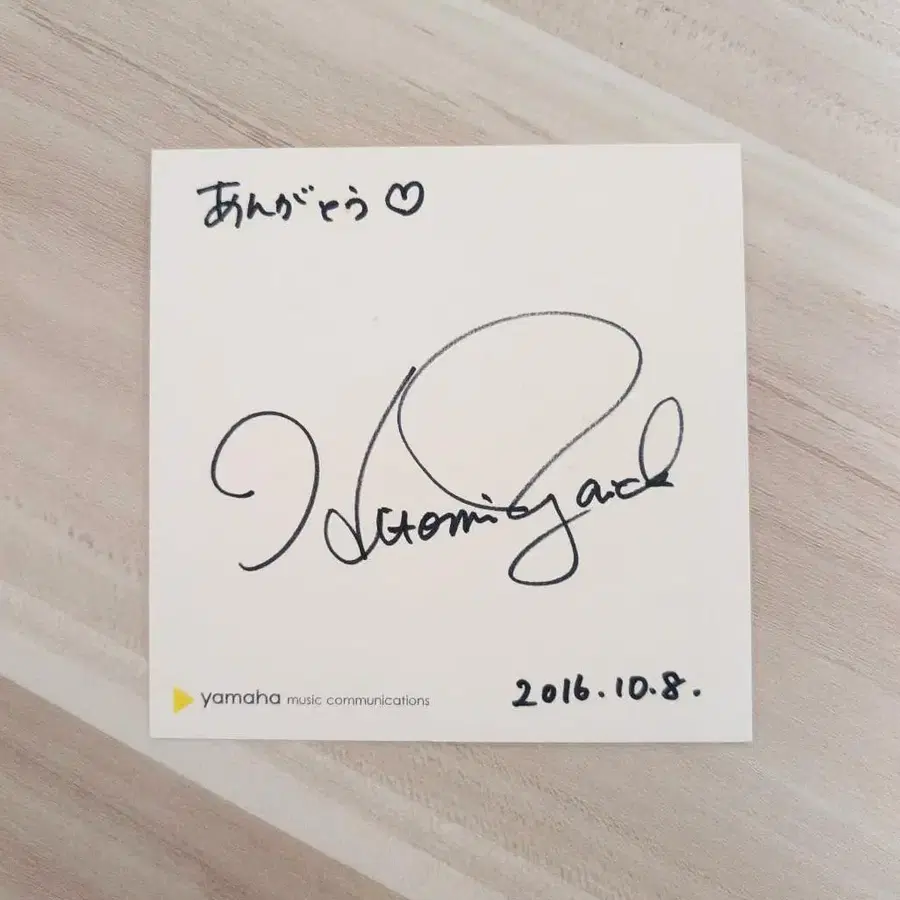 あんがとう♡
Hitomi Yaida
yamaha music communications
2016.10.8.